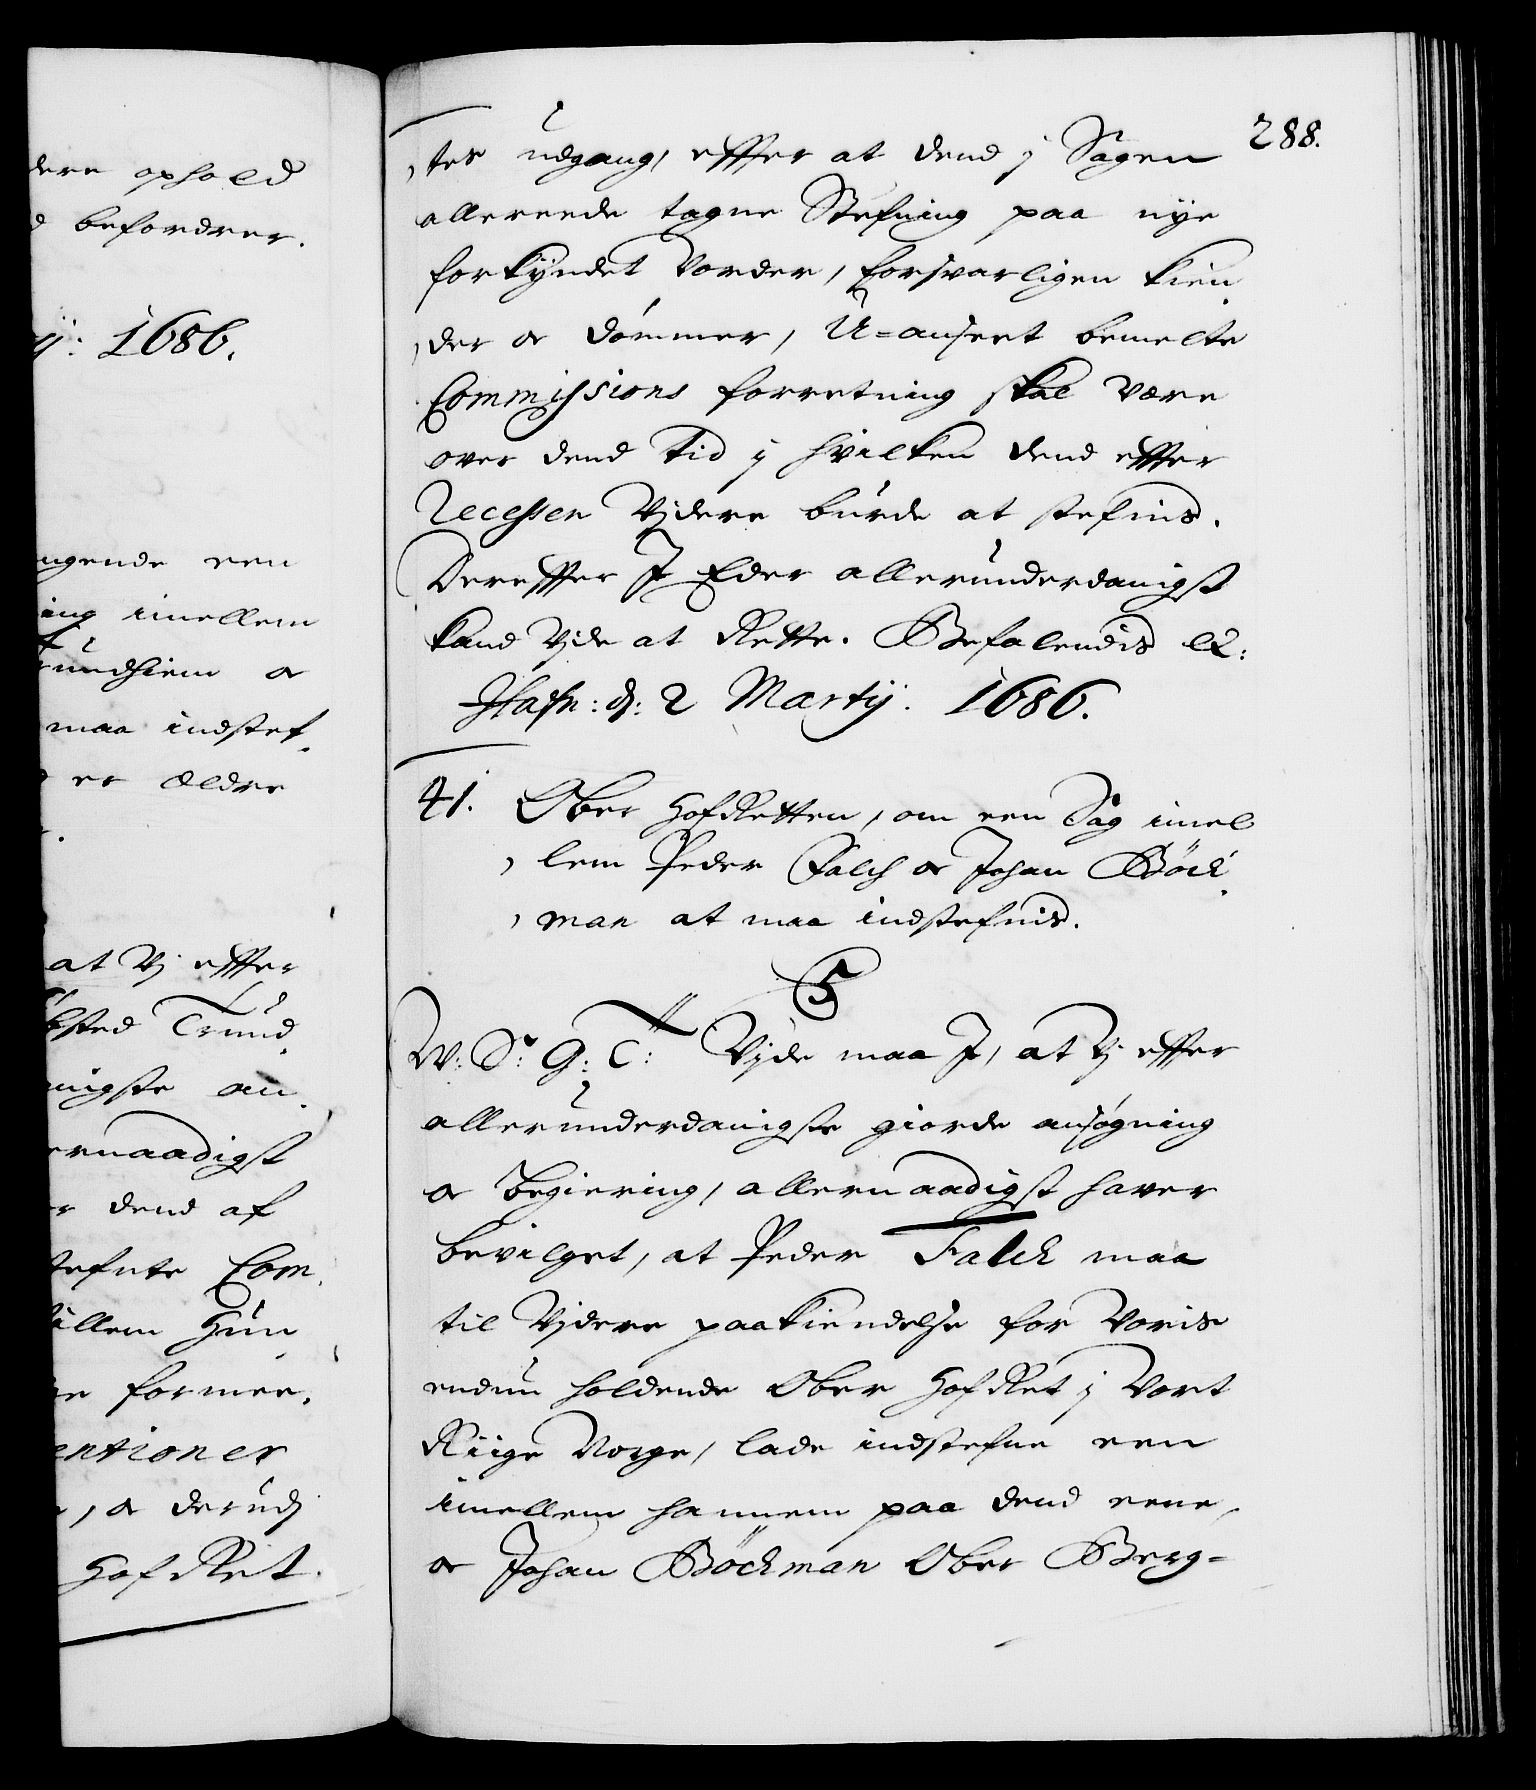 dere ophold
befordrer.
ij: 1686.
ngende een
ing imellem
undhiem oc
maa indstef
er Eldre
at Vj effter
bsted Trund
nigste an
ernaadigst
dend af
stefnte Com
illem Hun
formee,
entioner
, oc derudj
Hof Ret.
288.
,tes udgang, effter at dend j Sagen
allereede tagne Stefning paa nye
forkyndet Vorder, forsvarligen kien
,der oc dömmer, U=anseet bemelte
Commissions forretning skal være
over dend tid j hvilken dend effter
Recessen Vjdere burde at stefnis.
Dereffter I Eder allerunderdanigst
kand Vide at Rette. Befalendis &:
Hafn: d: 2 Martij: 1686.
41. Ober HofRetten, om een Sag imel
, lem Peder Falch oc Johan Böck
, man at maa indstefnis.
C5
W: S: G: T: Vjde maa I, at Vj effter
allerunderdanigste giorde ansøgning
oc begiering, allernaadigst haver
bevilget, at Peder Falck maa
til Vjdere paakiendelse for Voris
endnu holdende Ober HofRet j Vort
Riige Norge, lade indstefne een
imellem hannem paa dend eene,
oc Johan Böckman Ober Berg=